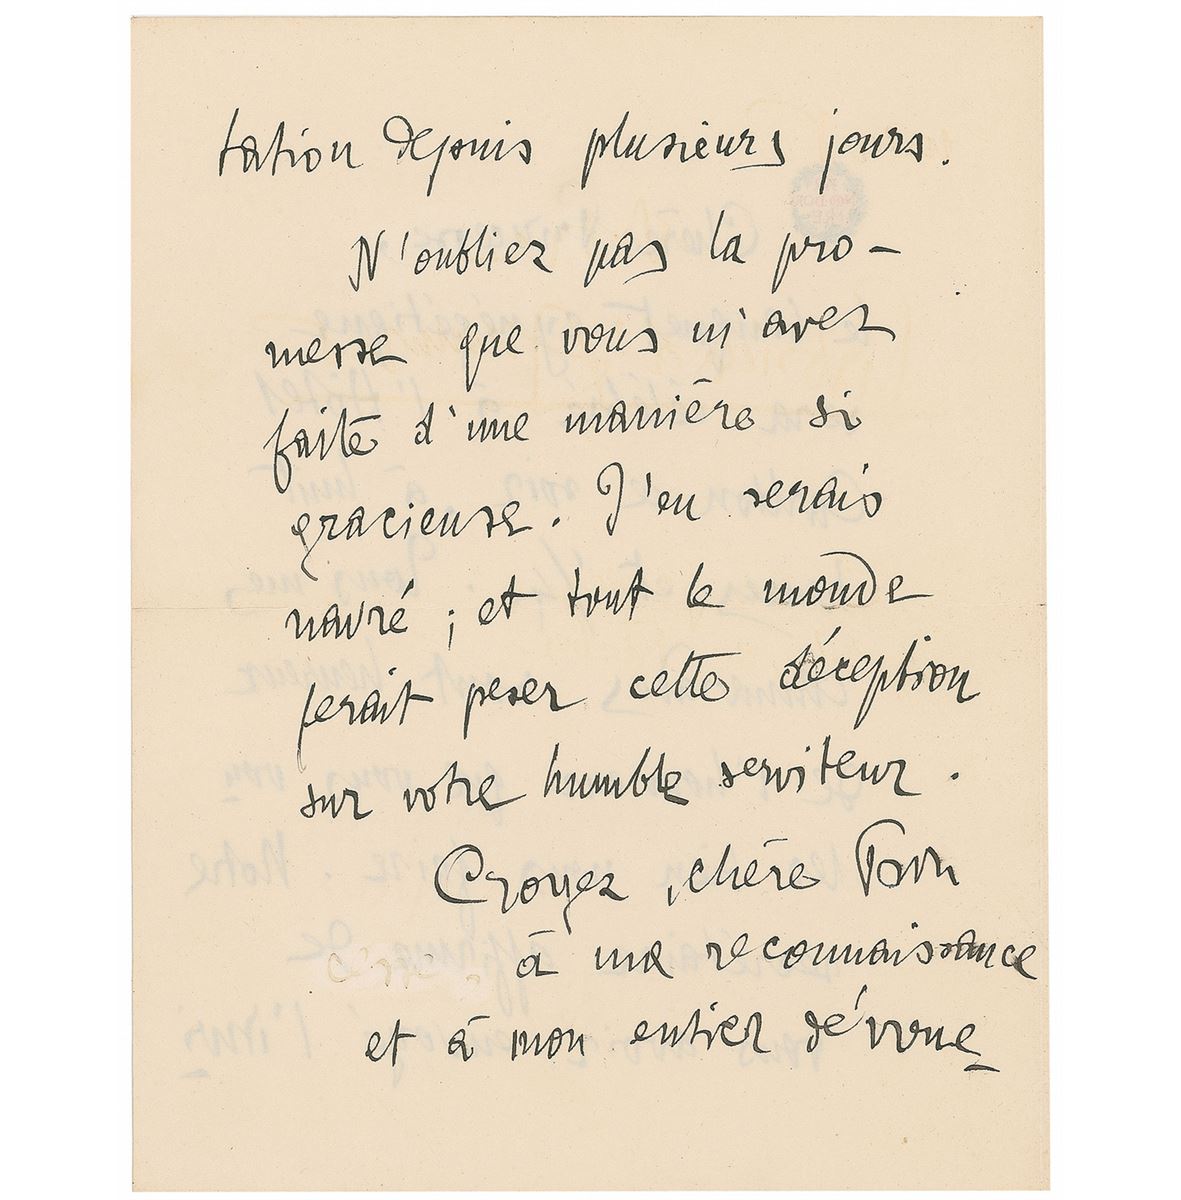 tation depuis plusieurs jours.
N'oubliez pas la pro-
messe que vous m'avez
faite d'une manière si
gracieuse. J'en serais
navré ; et tout le monde
ferait peser cette déception
sur votre humble serviteur.
Croyez, chère
à ma reconnaissance
et à mon entier dévoue